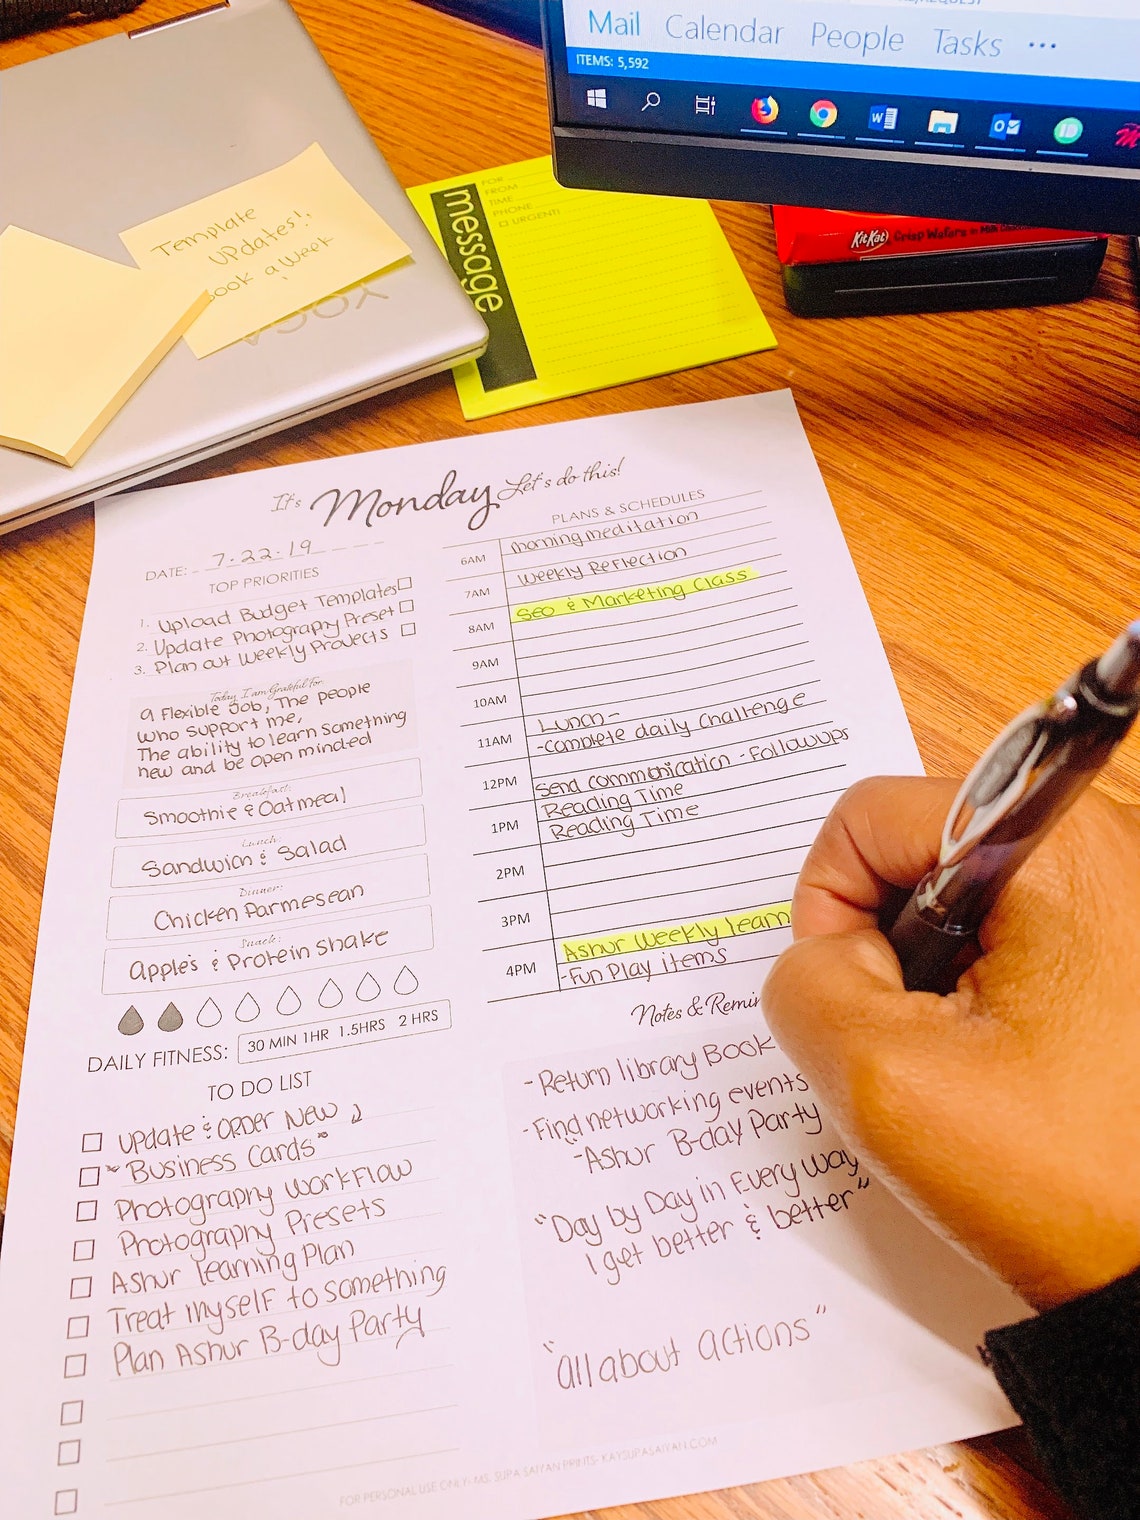 Mail Calendar People Tasks ...
ITEMS: 5,592
KitKat Crisp Wafers in Milk
FOR
FROM
TIME
PHONE
URGENT!
message
Template
UPdates!,
Book a Week
YOGA
It's Monday Let's do this!
DATE: 7.22.19
TOP PRIORITIES
1. Upload Budget Templates
2. Update Photography Preset
3. Plan out Weekly Projects
Today, I am Grateful for:
a Flexible Job, The people
who support me,
The ability to learn something
new and be open minded
Breakfast:
Smoothie & Oatmeal
Lunch:
Sandwich & Salad
Dinner:
Chicken Parmesean
Snack:
Apples & Protein Shake
DAILY FITNESS: 30 MIN 1HR 1.5HRS 2 HRS
TO DO LIST
Update & ORDER New
"Business Cards"
Photography Workflow
Photography Presets
Ashur learning Plan
Treat myself to something
Plan Ashur B-day Party
PLANS & SCHEDULES
morning meditation
6AM
Weekly Reflection
7AM
Seo & Marketing Class
8AM
9AM
10AM
Lunch-
11AM -Complete daily Challenge
12PM
Send communication - Followups
Reading Time
1PM Reading Time
2PM
3PM
Ashur Weekly learn
4PM -Fun Play items
Notes & Remin
- Return library Book
- Find networking events
- Ashur B-day Party
"Day by Day in Every way
I get better & better"
"all about actions"
FOR PERSONAL USE ONLY- MS. SUPA SAIYAN PRINTS- KAYSUPASAIYAN.COM